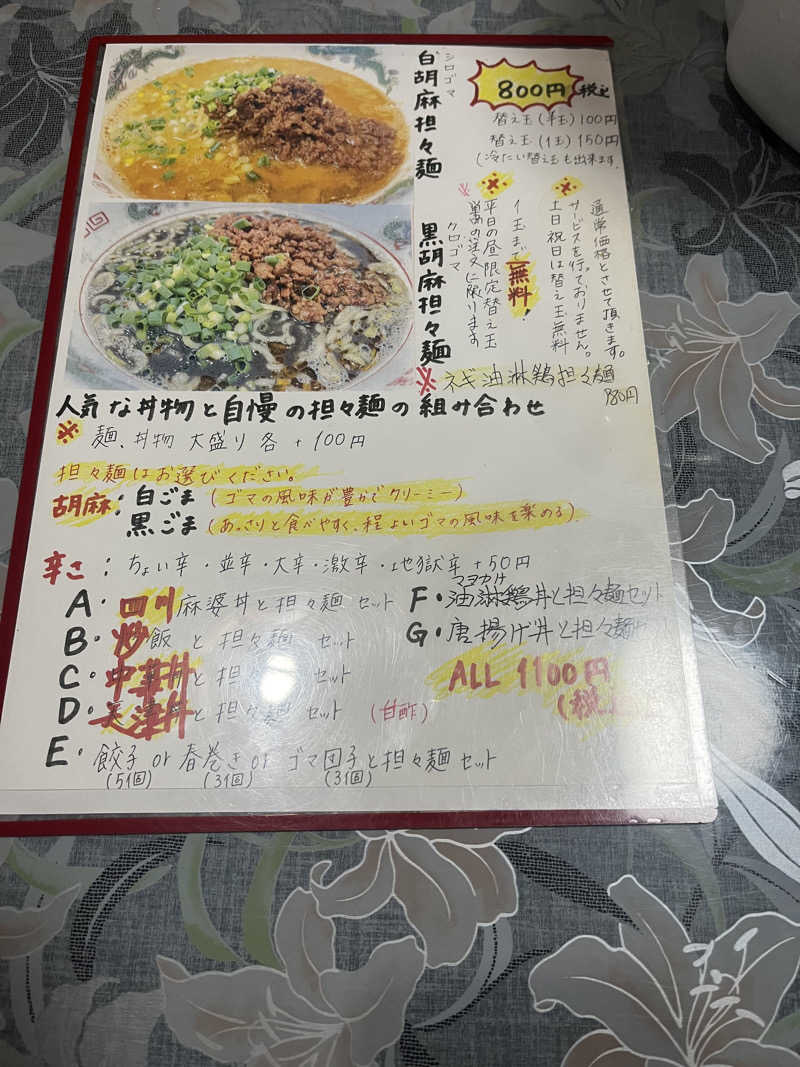 白胡麻担々麺
シロゴマ
黒胡麻担々麺
クロゴマ
800円 税込
替え玉(半玉)100円
替え玉(1玉)150円
(冷たい替え玉も出来ます。
※
平日の昼限定替え玉
1玉まで無料!
※
土日祝日は替え玉無料
サービスを行っておりません。
通常価格とさせて頂きます。
※ネギ油淋鶏担々麺
980円
人気な丼物と自慢の担々麺の組み合わせ
※麺、丼物 大盛り 各 +100円
担々麺はお選びください。
胡麻:白ごま(ゴマの風味が豊かでクリーミー)
黒ごま(あっさりと食べやすく、程よいゴマの風味を楽める)
辛さ:ちょい辛・並辛・大辛・激辛・地獄辛 +50円
A・四川麻婆丼と担々麺 セット
B・炒飯 と 担々麺 セット
C・中華丼と担々麺 セット
D・天津丼と担々麺 セット (甘酢)
E・餃子 or 春巻き or ゴマ団子と担々麺 セット
(5個) (3個) (3個)
マヨかけ
F・油淋鶏丼と担々麺セット
G・唐揚げ丼と担々麺セット
ALL 1100円
(税込